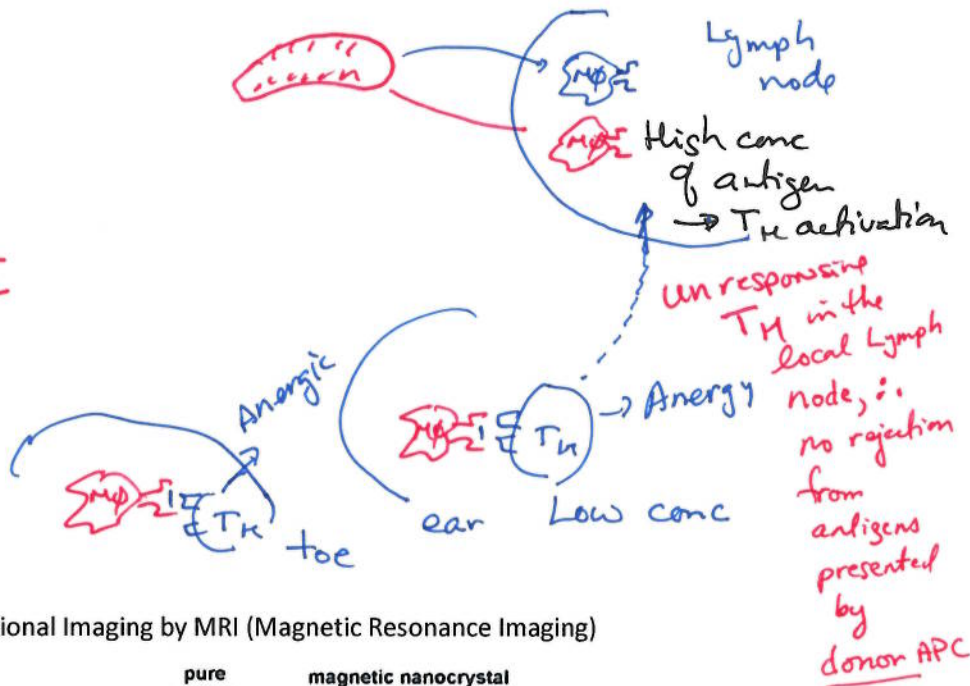 Lymph
node
Mφ
Mφ
High conc
of antigen
→ TH activation
unresponsive
TH in the
local Lymph
node, ∴
no rejection
from
antigens
presented
by
donor APC
Anergic
Mφ
TH
toe
Mφ
TH
→ Anergy
ear
Low conc
ional Imaging by MRI (Magnetic Resonance Imaging)
pure
magnetic nanocrystal